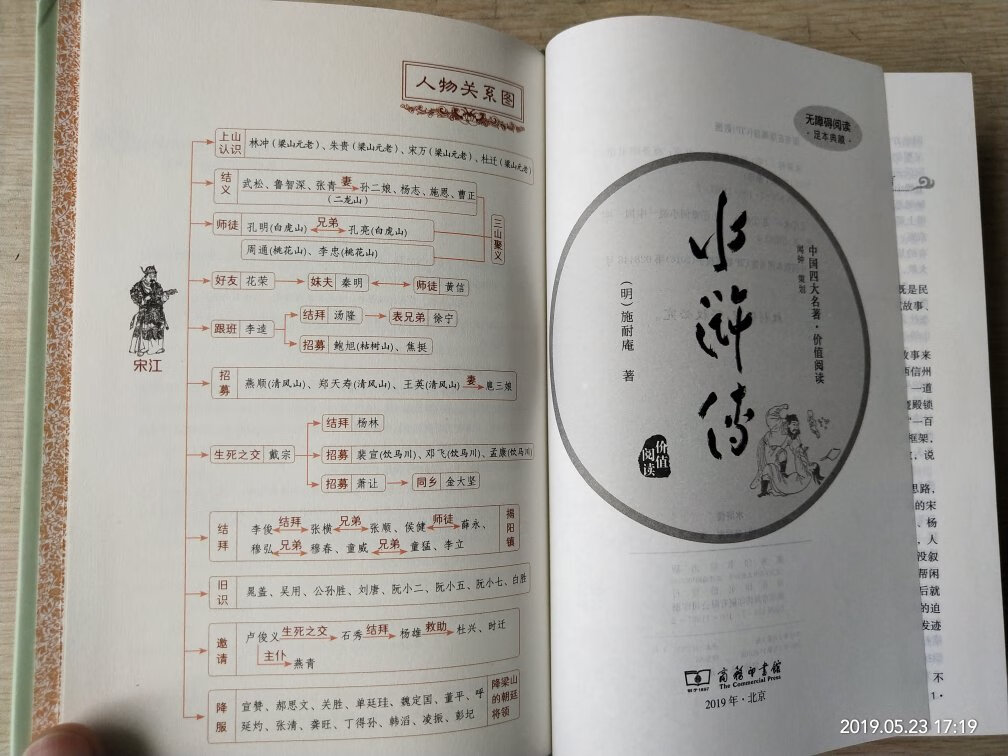 人物关系图
上山认识 林冲(梁山元老)、朱贵(梁山元老)、宋万(梁山元老)、杜迁(梁山元老)
结义 武松、鲁智深、张青 妻 孙二娘、杨志、施恩、曹正
(二龙山)
师徒 孔明(白虎山) 兄弟 孔亮(白虎山)
周通(桃花山)、李忠(桃花山)
三山聚义
好友 花荣 妹夫 秦明 师徒 黄信
跟班 李逵 结拜 汤隆 表兄弟 徐宁
招募 鲍旭(枯树山)、焦挺
宋江
招募 燕顺(清风山)、郑天寿(清风山)、王英(清风山) 妻 扈三娘
结拜 杨林
生死之交 戴宗 招募 裴宣(饮马川)、邓飞(饮马川)、孟康(饮马川)
招募 萧让 同乡 金大坚
结拜 李俊 结拜 张横 兄弟 张顺、侯健 师徒 薛永、
穆弘 兄弟 穆春、童威 兄弟 童猛、李立
揭阳镇
旧识 晁盖、吴用、公孙胜、刘唐、阮小二、阮小五、阮小七、白胜
邀请 卢俊义 生死之交 石秀 结拜 杨雄 救助 杜兴、时迁
主仆 燕青
降服 宣赞、郝思文、关胜、单廷珪、魏定国、董平、呼
延灼、张清、龚旺、丁得孙、韩滔、凌振、彭玘
降梁山的朝廷将领
无障碍阅读
·足本典藏·
水浒传
中国四大名著·价值阅读
闻钟 策划
(明)施耐庵 著
价值阅读
商务印书馆
The Commercial Press
2019年·北京
2019.05.23 17:19